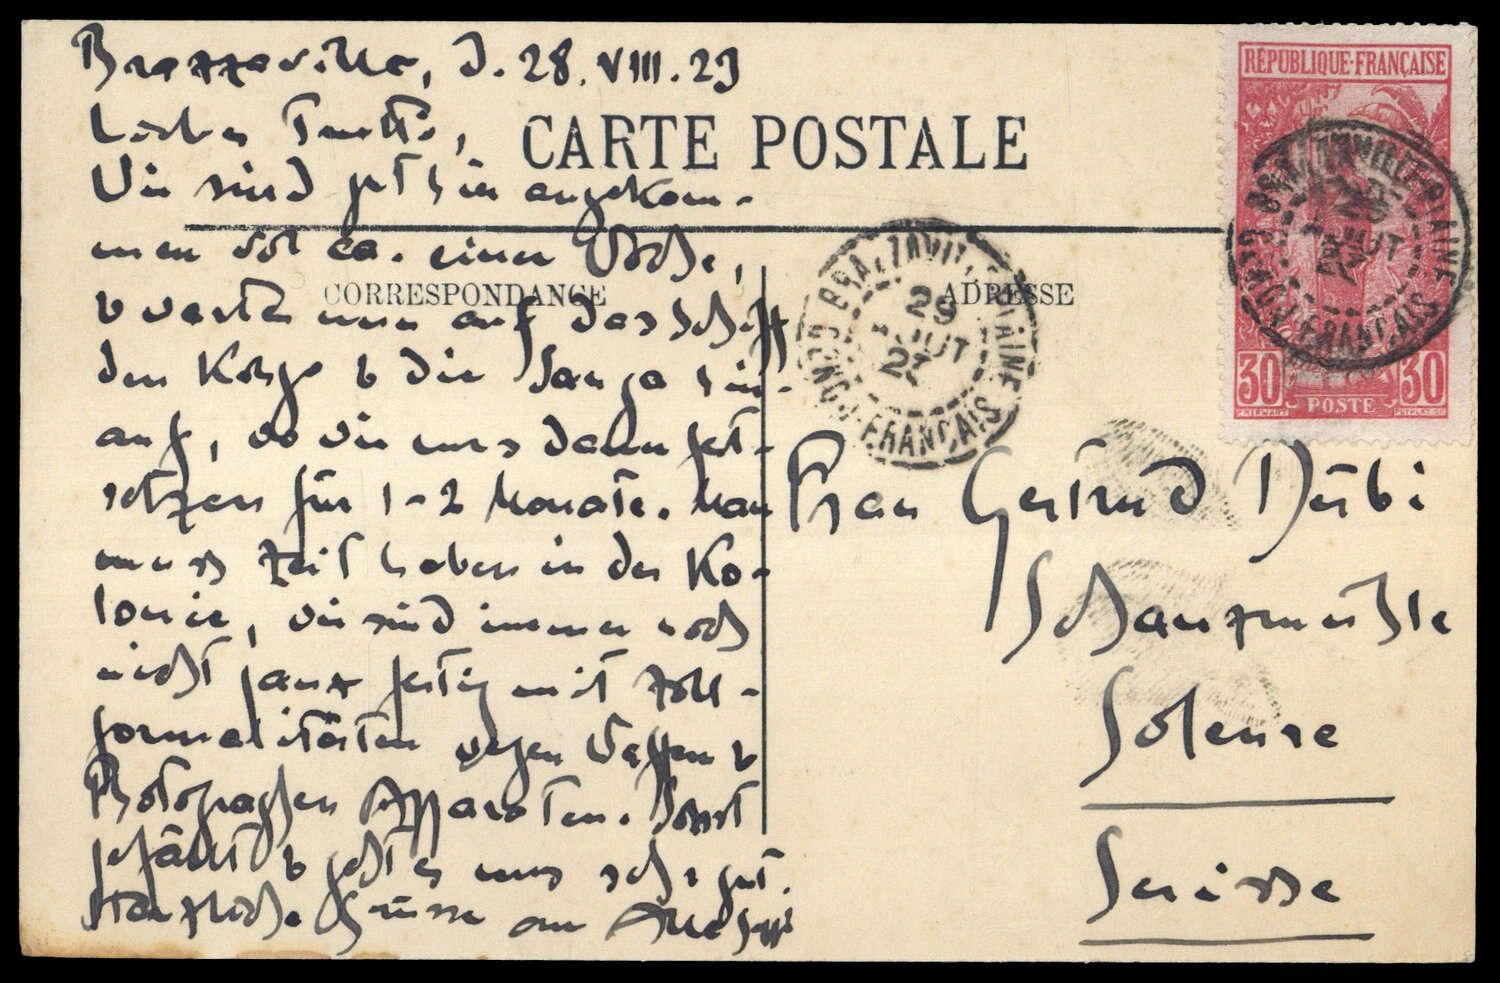 Brazzaville, d. 28. VIII. 23
CARTE POSTALE
Wir sind jetzt hier angekom-
men vor ca. einer Woche,
CORRESPONDANCE
& warten nun auf das Schiff
den Kongo & die Sanga hin-
auf, wo wir uns dann fest-
setzen für 1-2 Monate. Man
muss Zeit haben in der Ko-
lonie, wir sind immer noch
nicht ganz fertig mit Zoll-
formalitäten wegen Waffen &
Photographen Apparaten. Sonst
gefällt & geht es uns sehr gut.
Herzliche Grüsse an Alle
ADRESSE
Frau Gertrud Dübi
Schanzmühle
Soleure
Suisse
RÉPUBLIQUE-FRANÇAISE
30 POSTE 30
BRAZZAVILLE-PLAINE
29
AOUT
23
CONGO-FRANÇAIS